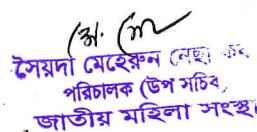 সৈয়দা মেহেরুন নেছা
পরিচালক (উপ সচিব)
জাতীয় মহিলা সংস্থা